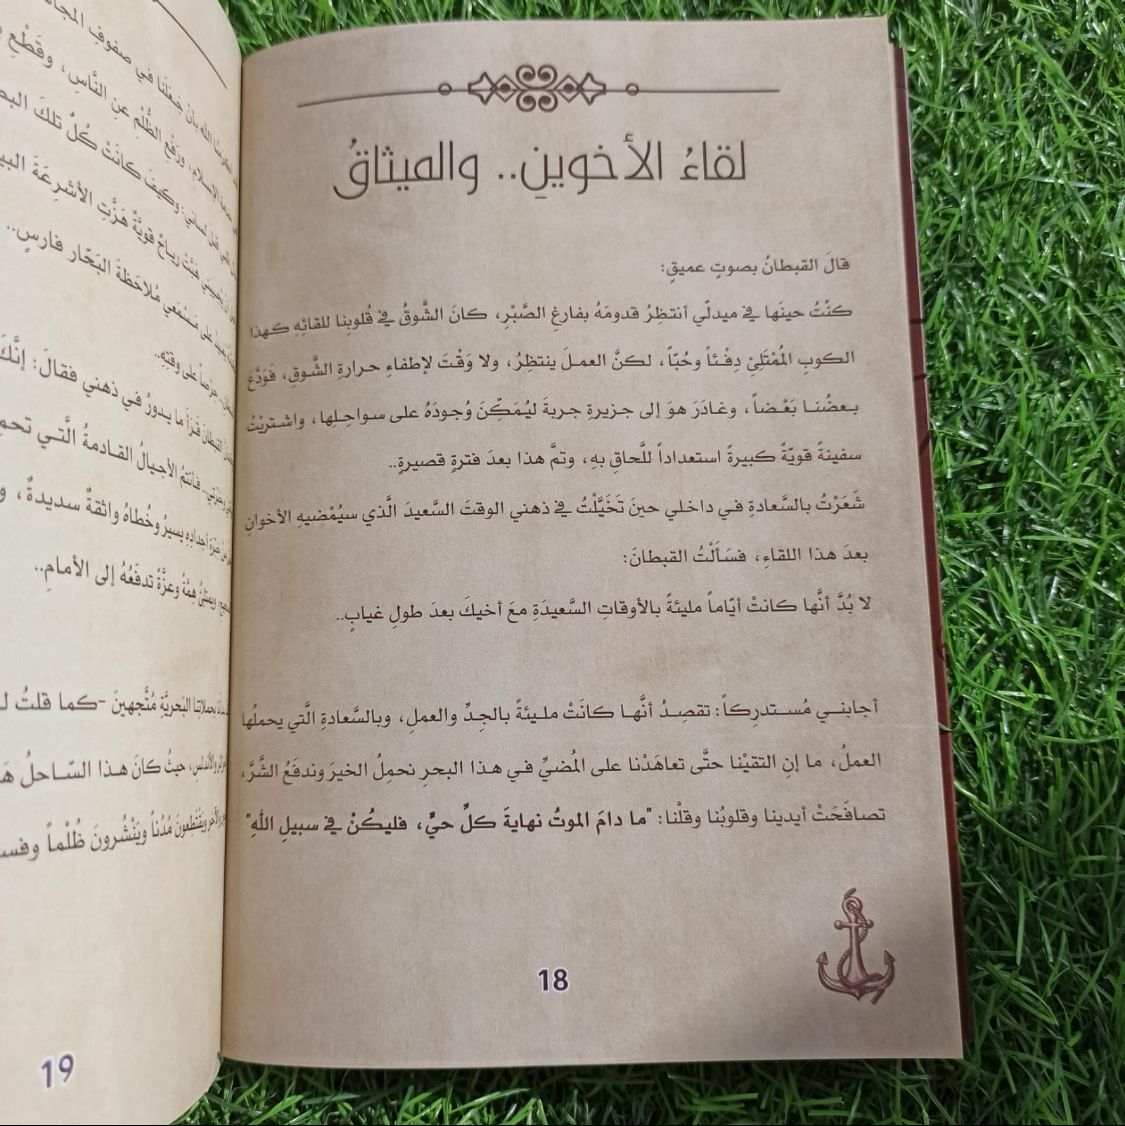 لقاءُ الأخوينِ.. والميثاقُ
قالَ القبطانُ بصوتٍ عميقٍ:
كنْتُ حينَها في ميدلّي أنتظِرُ قدومَهُ بفارغِ الصَّبْرِ، كانَ الشَّوقُ في قُلوبِنا للقائِهِ كهذا
الكوبِ المُمْتَلِئِ دِفْئاً وحُبّاً، لكنَّ العملَ ينتظرُ، ولا وَقْتَ لإطفاءِ حرارةِ الشَّوقِ، فَوَدَّعَ
بعضُنا بَعْضاً، وغادَرَ هوَ إلى جزيرةِ جربةَ ليُمَكِّنَ وُجودَهُ على سواحِلِها، واشتريْتُ
سفينةً قويّةً كبيرةً استعداداً للَّحاقِ بهِ، وتمَّ هذا بعدَ فترةٍ قصيرةٍ..
شَعَرْتُ بالسَّعادةِ في داخلي حينَ تَخَيَّلْتُ في ذهني الوقتَ السَّعيدَ الَّذي سيُمْضيهِ الأخوانِ
بعدَ هذا اللقاءِ، فسَأَلْتُ القبطانَ:
لا بُدَّ أنَّها كانتْ أيّاماً مليئةً بالأوقاتِ السَّعيدَةِ معَ أخيكَ بعدَ طولِ غيابٍ..
أجابني مُستدرِكاً: تقصِدُ أنَّها كانَتْ مليئةً بالجِدِّ والعملِ، وبالسَّعادةِ الَّتي يحملُها
العملُ، ما إنِ التقيْنا حتَّى تعاهَدْنا على المُضيِّ في هذا البحرِ نحمِلُ الخيرَ وندفَعُ الشَّرَّ،
تصافَحَتْ أيدينا وقلوبُنا وقلْنا: "ما دامَ الموتُ نهايةَ كلِّ حيٍّ، فليكُنْ في سبيلِ اللهِ"
18
في صفوفِ
الإسلامِ، ورَفْعِ الظُّلْمِ عنِ النَّاسِ، وقَطْعِ
لساني: وكيفَ كانَتْ كُلُّ تلكَ
هَبَّتْ رياحٌ قويَّةٌ هَزَّتِ الأشرِعَةَ
على مَسْمَعي مُلاحَظَةَ البَحّارِ فارسٍ..
حِرْصاً على وقتِهِ..
القبطانَ قرَأَ ما يدورُ في ذهني فقالَ: إنَّكَ
فأنتمُ الأجيالُ القادمةُ الَّتي
أجدادِهِ يسيرُ وخُطاهُ واثقةٌ سديدةٌ،
ويمتلئُ هِمَّةً وعزَّةً تدفَعُهُ إلى الأمامِ..
بحملاتِنا البَحريَّةِ مُتَّجهينَ -كما قلتُ
والأندلسِ، حيثُ كانَ هذا السّاحلُ
ويَقْتَطِعونَ مُدُناً ويَنْشُرونَ ظُلْماً
19